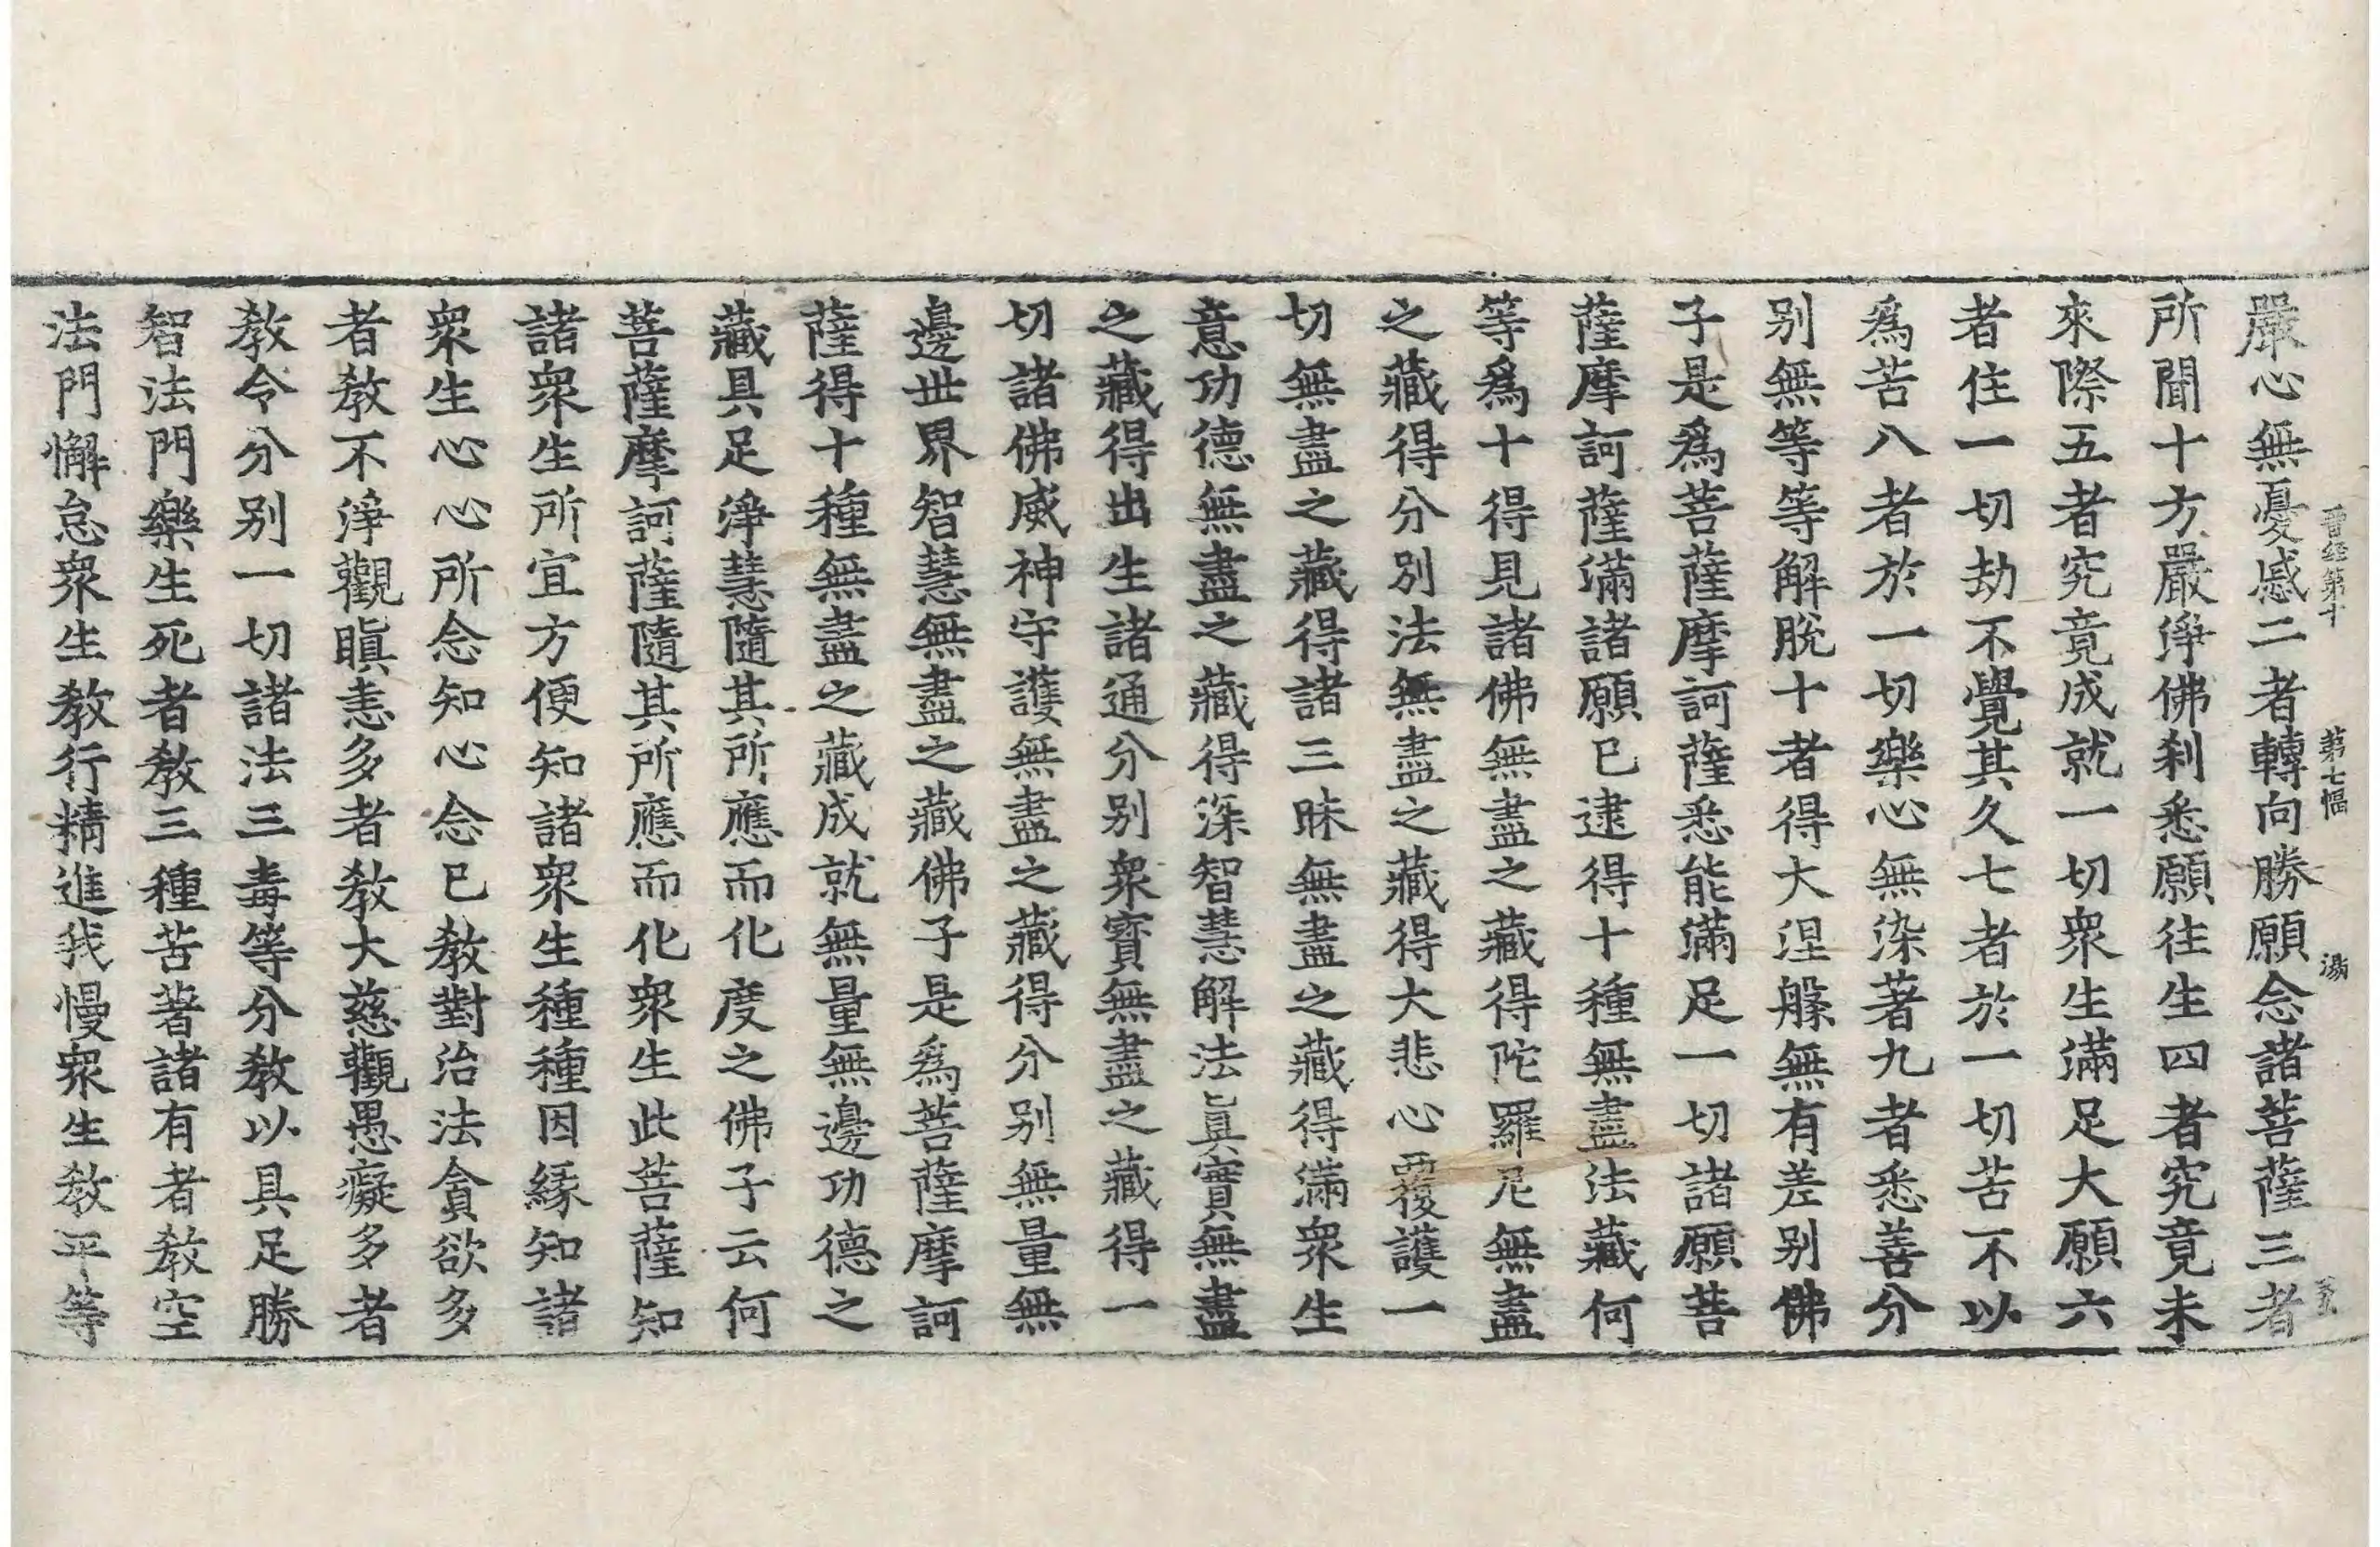 晋経第十 第七幅 湯
嚴心無憂慼二者轉向勝願念諸菩薩三者
所聞十方嚴淨佛刹悉願往生四者究竟未
來際五者究竟成就一切衆生滿足大願六
者住一切劫不覺其久七者於一切苦不以
爲苦八者於一切樂心無染著九者悉善分
别無等等解脫十者得大涅槃無有差别佛
子是爲菩薩摩訶薩悉能滿足一切諸願菩
薩摩訶薩滿諸願已逮得十種無盡法藏何
等爲十得見諸佛無盡之藏得陀羅尼無盡
之藏得分别法無盡之藏得大悲心覆護一
切無盡之藏得諸三昧無盡之藏得滿衆生
意功德無盡之藏得深智慧解法真實無盡
之藏得出生諸通分别衆寳無盡之藏得一
切諸佛威神守護無盡之藏得分别無量無
邊世界智慧無盡之藏佛子是爲菩薩摩訶
薩得十種無盡之藏成就無量無邊功德之
藏具足淨慧隨其所應而化度之佛子云何
菩薩摩訶薩隨其所應而化衆生此菩薩知
諸衆生所宜方便知諸衆生種種因縁知諸
衆生心心所念知心念已教對治法貪欲多
者教不淨觀瞋恚多者教大慈觀愚癡多者
教令分别一切諸法三毒等分教以具足勝
智法門樂生死者教三種苦著諸有者教空
法門懈怠衆生教行精進我慢衆生教平等